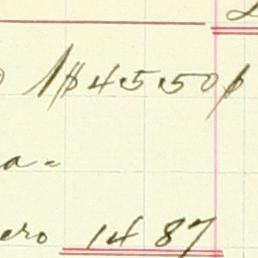 1$45.50¢
a-
ero 14 87